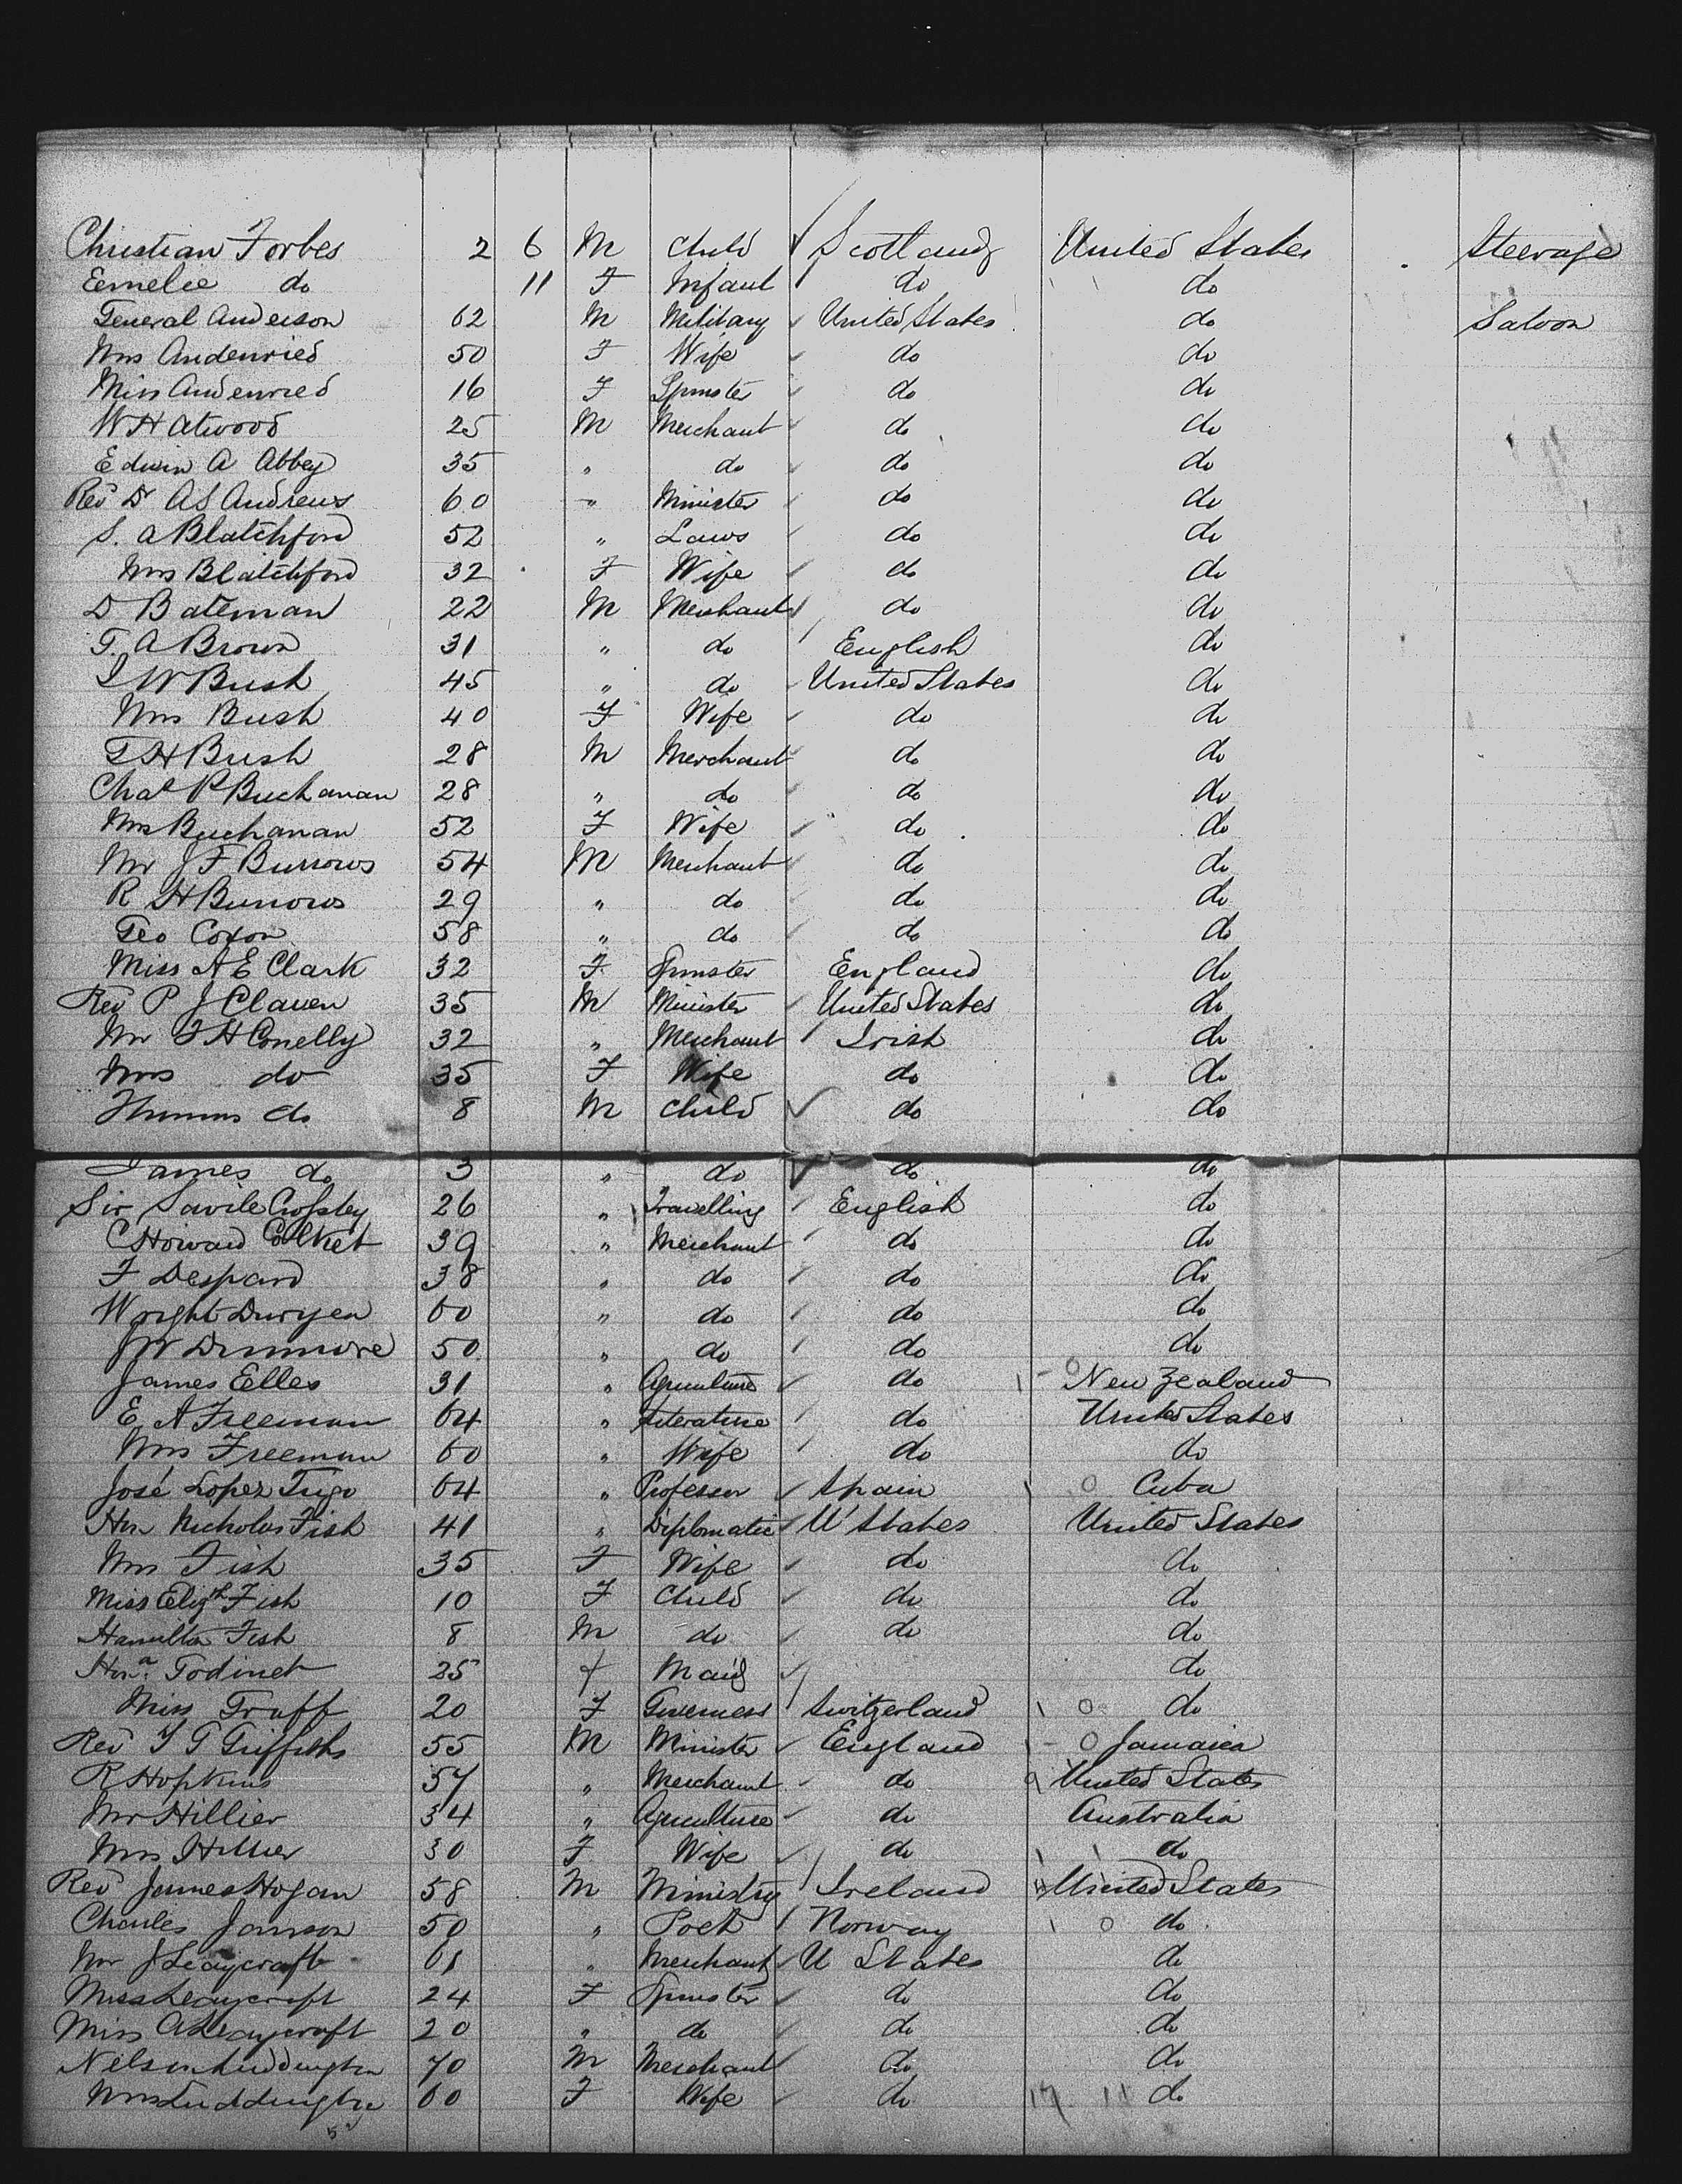 Christian Forbes 2 6 M Child Scotland United States Steerage
Eemelie do 11 F Infant do do
General Anderson 62 M Military United States do Saloon
Mrs Audenried 50 F Wife do do
Miss Audenried 16 F Spinster do do
W H Atwood 25 M Merchant do do
Edwin A Abbey 35 " do do do
Revd Dr A S Andrews 60 " Minister do do
S. A Blatchford 52 " Laws do do
Mrs Blatchford 32 F Wife do do
D Bateman 22 M Merchant do do
F. A Brown 31 " do English do
S W Bush 45 " do United States do
Mrs Bush 40 F Wife do do
T H Bush 28 M Merchant do do
Chas P Buchanan 28 " do do do
Mrs Buchanan 52 F Wife do do
Mr J F Burrows 54 M Merchant do do
R H Burrows 29 " do do do
Geo Coxon 58 " do do do
Miss A E Clark 32 F Spinster England do
Rev P J Claven 35 M Minister United States do
Mr F H Conelly 32 " Merchant Irish do
Mrs do 35 F Wife do do
Thomas do 8 M Child do do
James do 3 " do do do
Sir Savile Crossley 26 " Travelling English do
C Howard Colket 39 " Merchant do do
F Despard 38 " do do do
Wright Duryea 60 " do do do
J W Dunmore 50 " do do do
James Elles 31 " Agriculture do New Zealand
E. A Freeman 64 " Literature do United States
Mrs Freeman 60 " Wife do do
José Lopez Trigo 64 " Professor Spain Cuba
Hon Nicholas Fish 41 " Diplomatic U States United States
Mrs Fish 35 F Wife do do
Miss Elizth Fish 10 F Child do do
Hamilton Fish 8 M do do do
Godinet 25 f Maid do
Miss Graff 20 F Governess Switzerland do
Rev T G Griffiths 55 M Minister England Jamaica
R Hopkins 57 " Merchant do United States
Mr Hillier 34 " Agriculture do Australia
Mrs Hillier 30 F Wife do do
Rev James Hogan 58 M Ministry Ireland United States
Charles Janson 50 " Poet Norway do
Mr J Leaycraft 61 " Merchant U States do
Miss Leaycraft 24 F Spinster do do
Miss A Leaycraft 20 " do do do
Nelson Luddington 70 M Merchant do do
Mrs Luddington 60 F Wife do 17 11 do